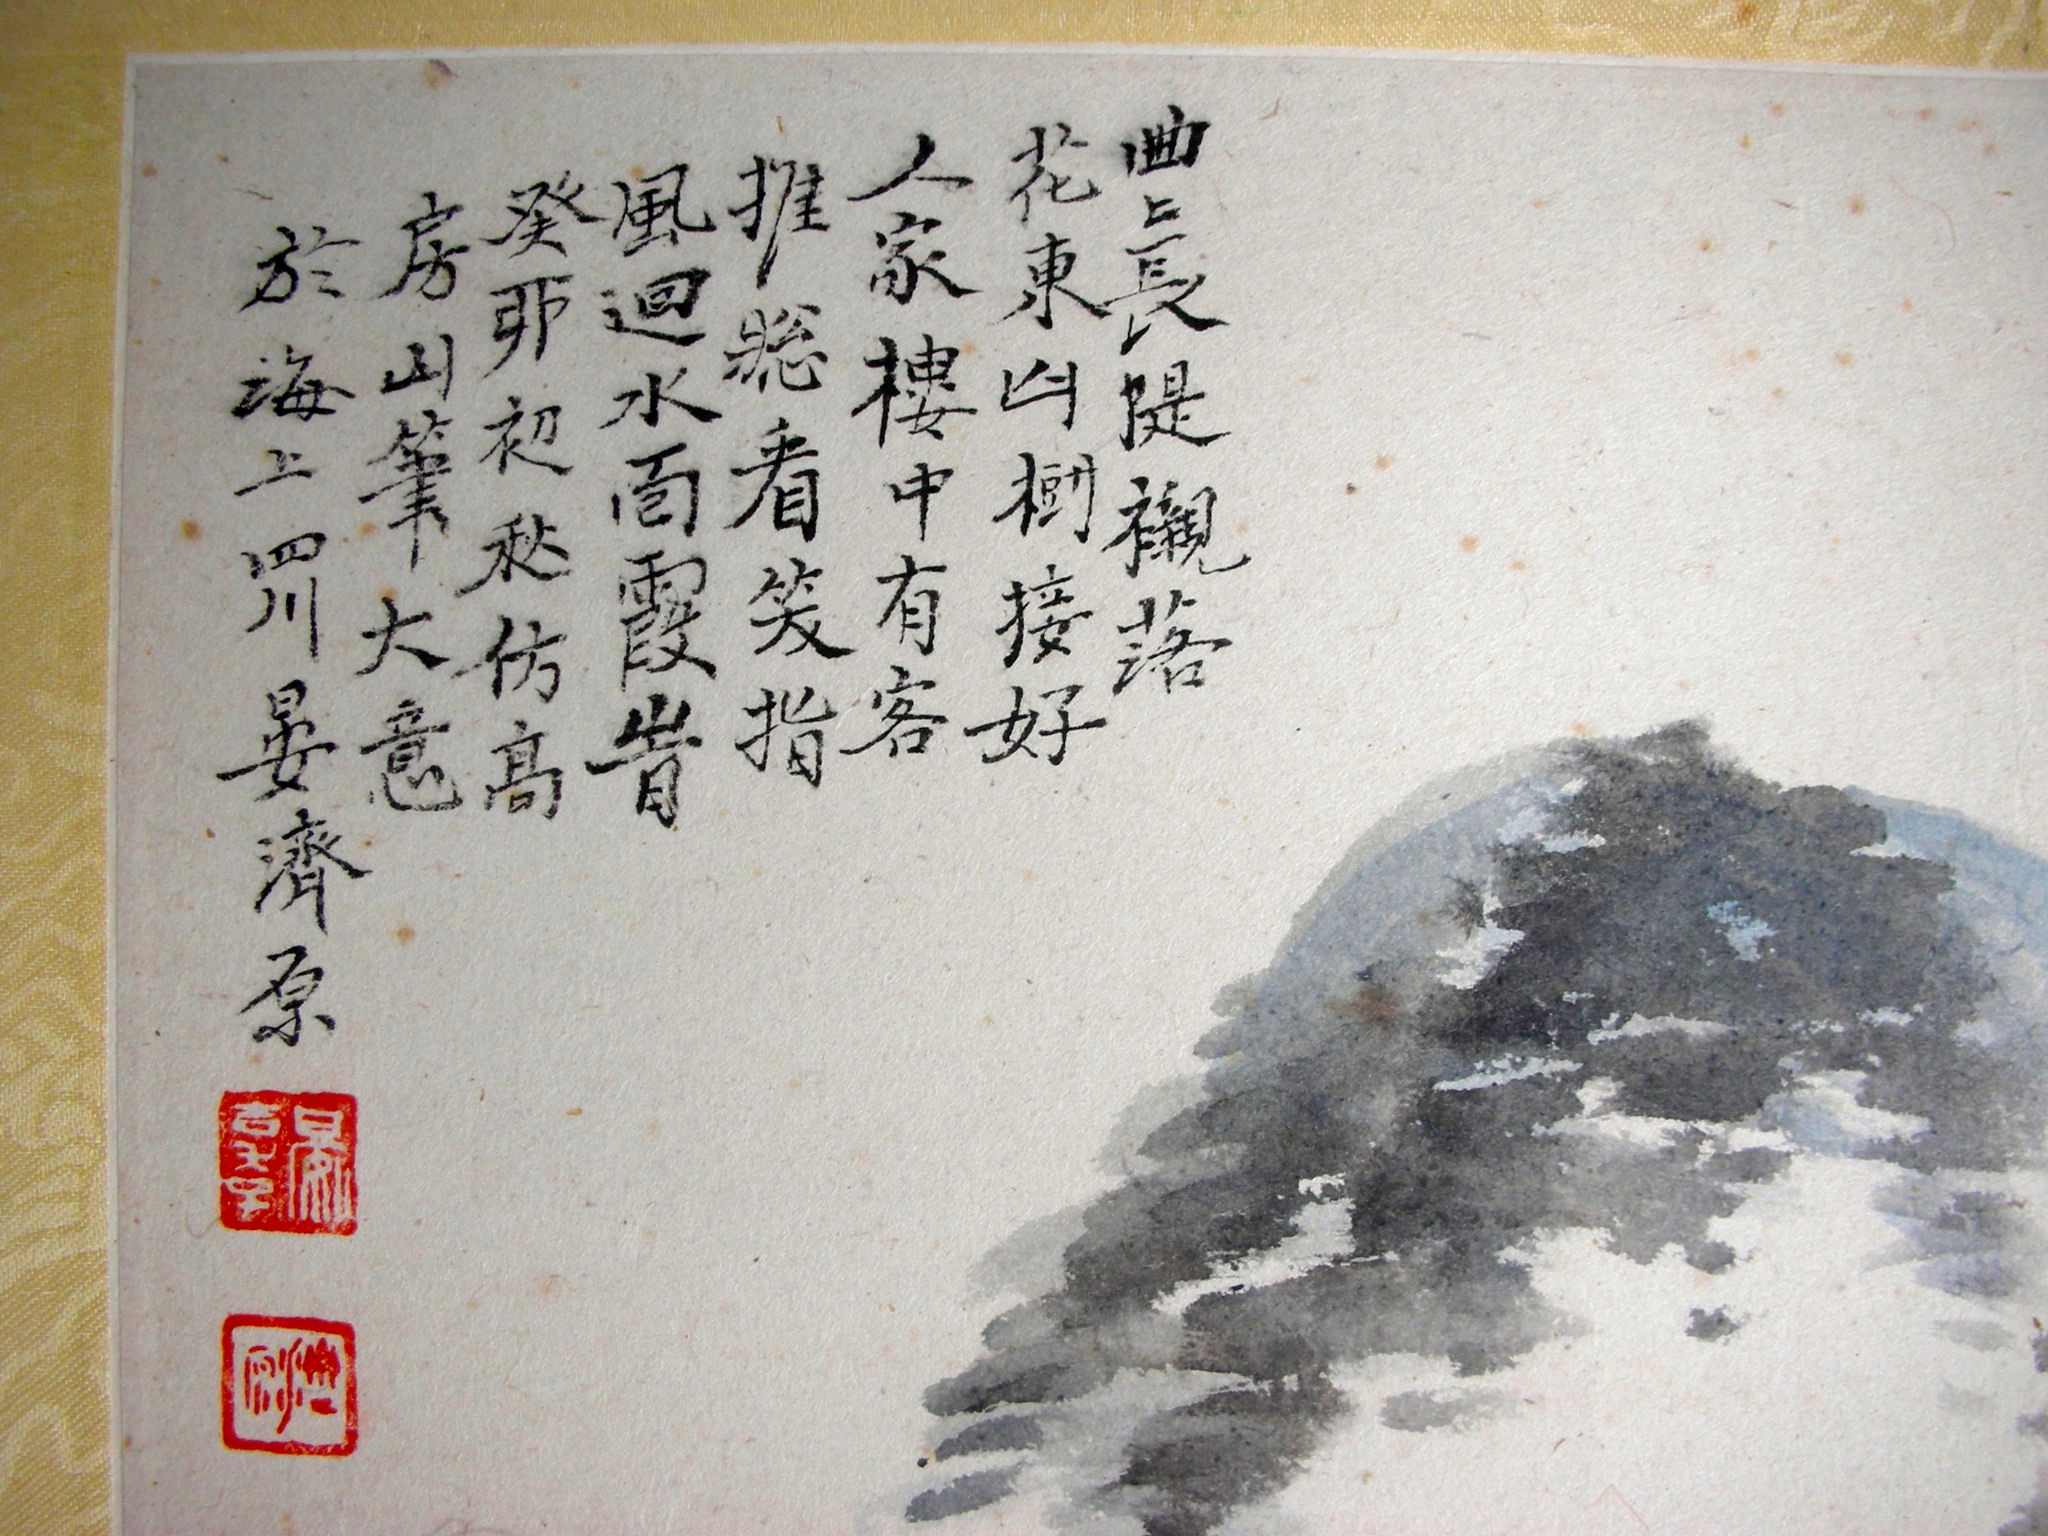 曲曲長隄襯落
花東凹樹接好
人家樓中有客
推窓看笑指
風迴水面霞
癸丣初秋仿高
房山筆大意
於海上四川晏濟原